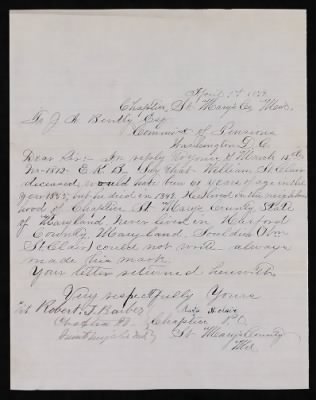 Chaptico, St. Mary's Co, Md.
To J A Bently Esq
Commis of Pensions
Washington D.C.
Dear Sir:- In reply to yours of March 15th
E. K. B. Say that William St Clair
deceased, would have been 61 years of age in the
year 1855, but he died in He lived in the neighbor
hood of Chaptico St. Marys County State
of Maryland, never lived in Harford
County, Maryland. Soldier (Wm
St Clair) could not write always
made his mark.
Your letter returned herewith.
Very respectfully Yours
Robert. T. Barber
Chaptico P. O
St Marys County
Md